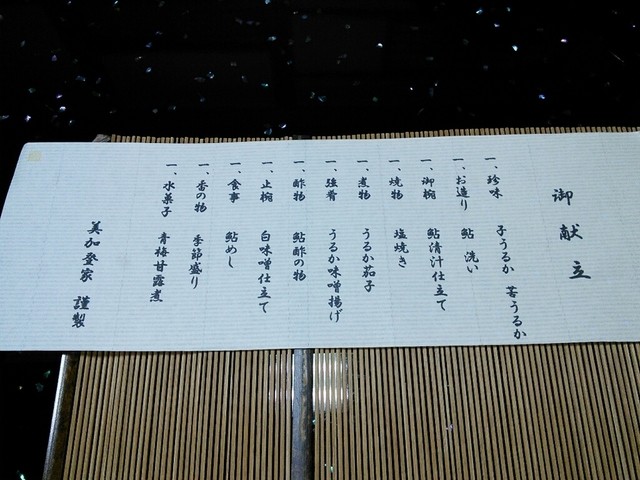 御献立
一、珍味 子うるか 苦うるか
一、お造り 鮎 洗い
一、御椀 鮎清汁仕立て
一、焼物 塩焼き
一、煮物 うるか茄子
一、強肴 うるか味噌揚げ
一、酢物 鮎酢の物
一、止椀 白味噌仕立て
一、食事 鮎めし
一、香の物 季節盛り
一、水菓子 青梅甘露煮
美加登家 謹製